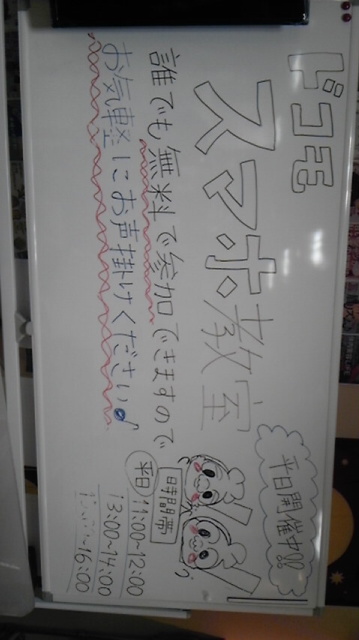 ドコモ
スマホ教室
平日開催中!!
誰でも無料で参加できますので
お気軽にお声掛けください♪
時間帯
平日 11:00~12:00
13:00~14:00
16:00